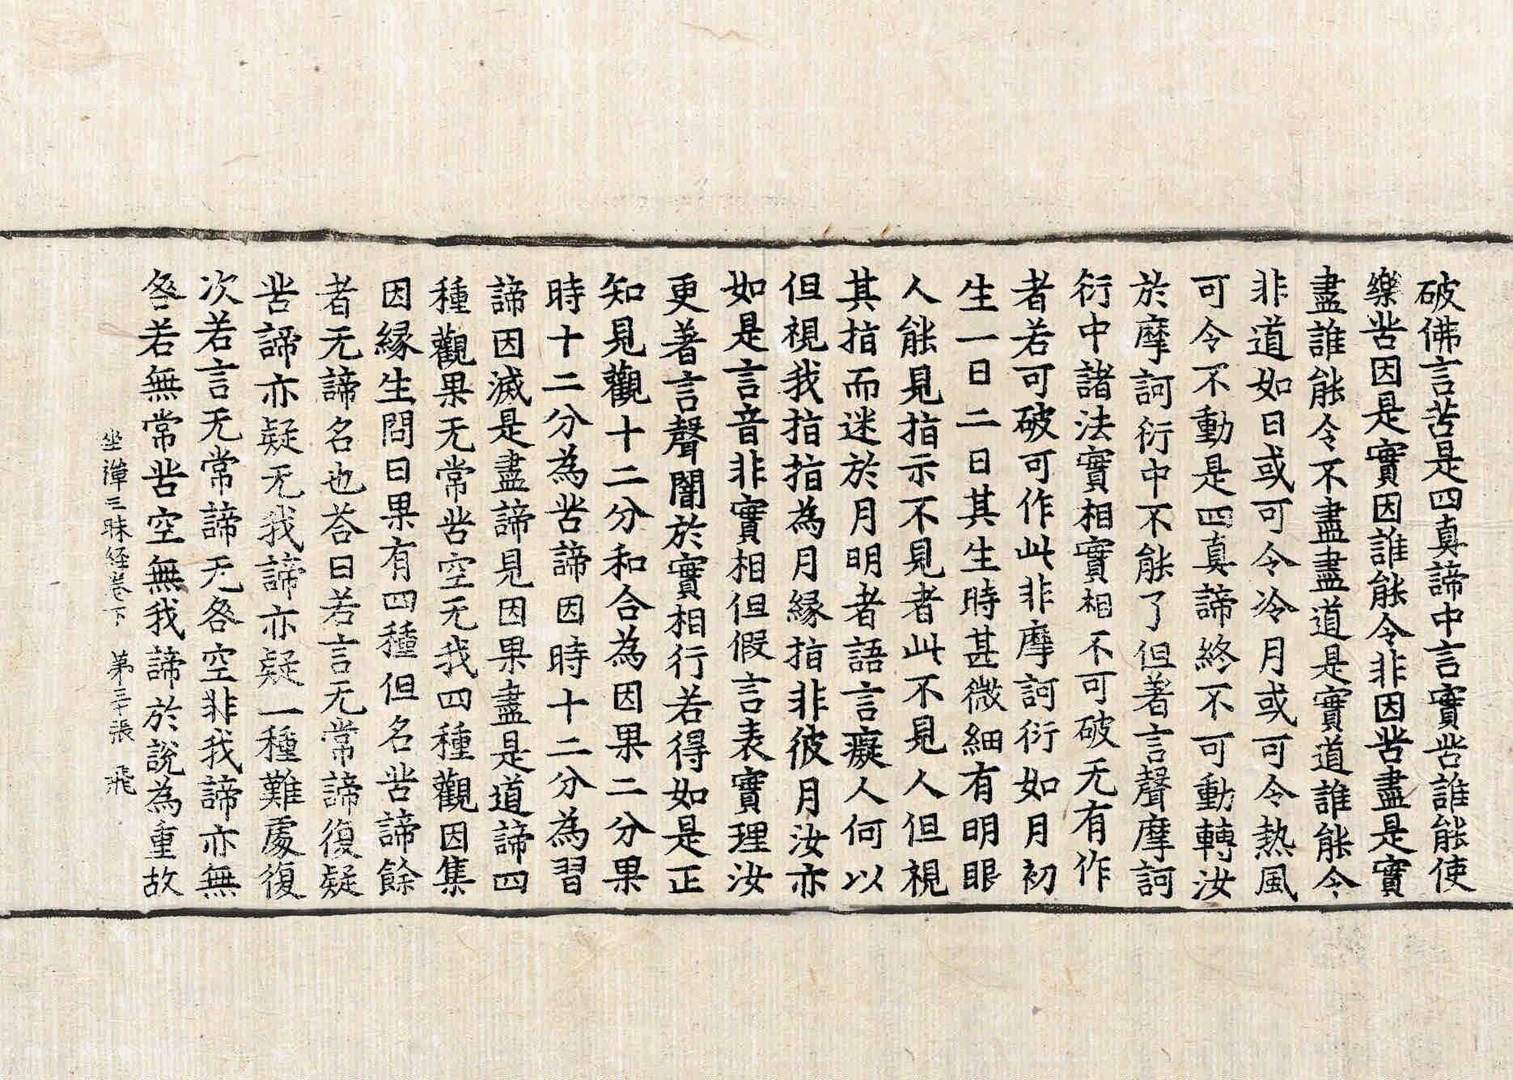 破佛言苦是四真諦中言實苦誰能使
樂苦因是實因誰能令非因苦盡是實
盡誰能令不盡盡道是實道誰能令
非道如日或可令冷月或可令熱風
可令不動是四真諦終不可動轉汝
於摩訶衍中不能了但著言聲摩訶
衍中諸法實相實相不可破无有作
者若可破可作此非摩訶衍如月初
生一日二日其生時甚微細有明眼
人能見指示不見者此不見人但視
其指而迷於月明者語言癡人何以
但視我指指為月緣指非彼月汝亦
如是言音非實相但假言表實理汝
更著言聲闇於實相行若得如是正
知見觀十二分和合為因果二分果
時十二分為苦諦因時十二分為習
諦因滅是盡諦見因果盡是道諦四
種觀果无常苦空无我四種觀因集
因緣生問曰果有四種但名苦諦餘
者无諦名也荅曰若言无常諦復疑
苦諦亦疑无我諦亦疑一種難處復
次若言无常諦无咎空非我諦亦無
咎若無常苦空無我諦於說為重故
坐禪三昧經卷下 第三十張 飛